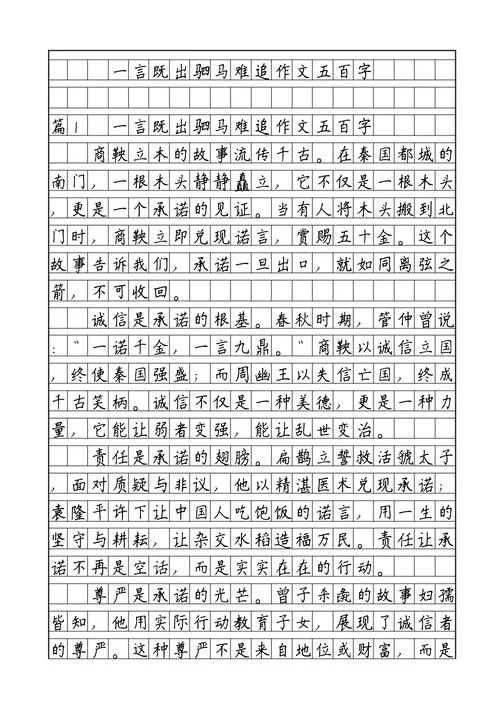 一言既出驷马难追作文五百字
篇1 一言既出驷马难追作文五百字
商鞅立木的故事流传千古。在秦国都城的
南门，一根木头静静矗立，它不仅是一根木头
，更是一个承诺的见证。当有人将木头搬到北
门时，商鞅立即兑现诺言，赏赐五十金。这个
故事告诉我们，承诺一旦出口，就如同离弦之
箭，不可收回。
诚信是承诺的根基。春秋时期，管仲曾说
：“一诺千金，一言九鼎。”商鞅以诚信立国
，终使秦国强盛；而周幽王以失信亡国，终成
千古笑柄。诚信不仅是一种美德，更是一种力
量，它能让弱者变强，能让乱世变治。
责任是承诺的翅膀。扁鹊立誓救活虢太子
，面对质疑与非议，他以精湛医术兑现承诺；
袁隆平许下让中国人吃饱饭的诺言，用一生的
坚守与耕耘，让杂交水稻造福万民。责任让承
诺不再是空话，而是实实在在的行动。
尊严是承诺的光芒。曾子杀彘的故事妇孺
皆知，他用实际行动教育子女，展现了诚信者
的尊严。这种尊严不是来自地位或财富，而是